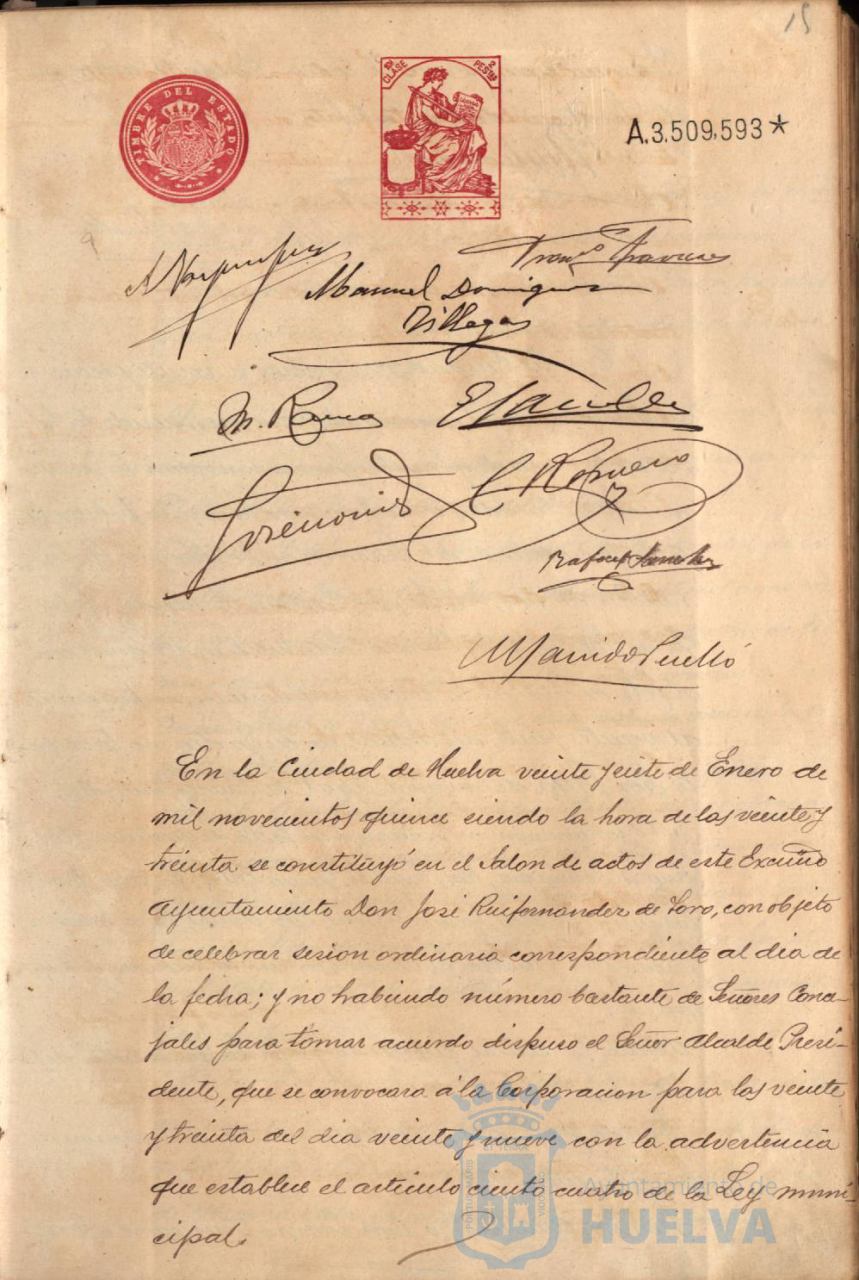 15
TIMBRE DEL ESTADO
10ª CLASE
2 PESTAS
A.3,509,593*
Manuel Dominguez
Villegas
M. Rama
C Romero
Rafael Sanchez
En la Ciudad de Huelva veinte y siete de Enero de
mil novecientos quince siendo la hora de las veinte y
treinta se constituyó en el Salon de actos de este Excmo
Ayuntamiento Don José Ruifernandez de Toro, con objeto
de celebrar sesion ordinaria correspondiente al dia de
la fecha; y no habiendo número bastante de Señores Conce-
jales para tomar acuerdo dispuso el Señor Alcalde Presi-
dente, que se convocara á la Corporacion para las veinte
y treinta del dia veinte y nueve con la advertencia
que establece el articulo ciento cuatro de la Ley muni-
cipal.
Ayuntamiento de
HUELVA